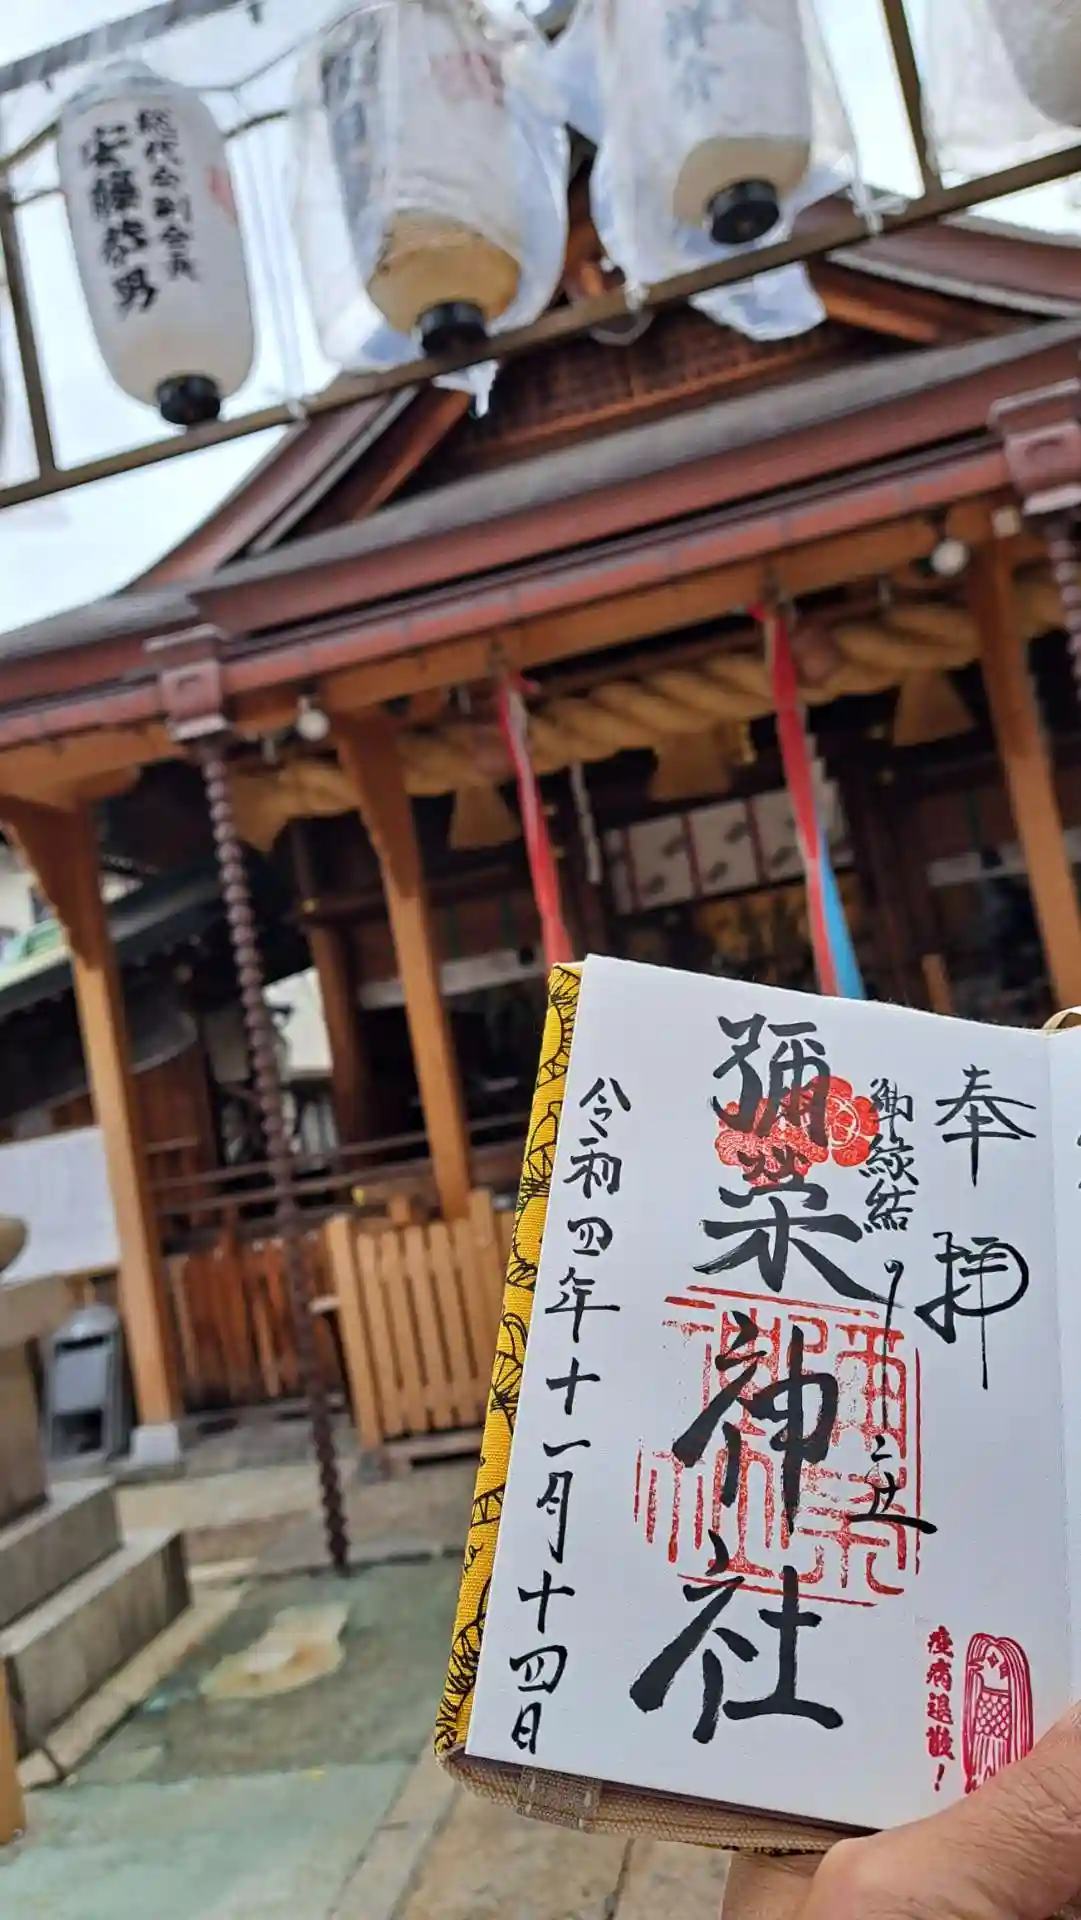 総代会副会長
安藤恭男
奉拝
御縁結の社
彌榮神社
令和四年十一月十四日
疫病退散！